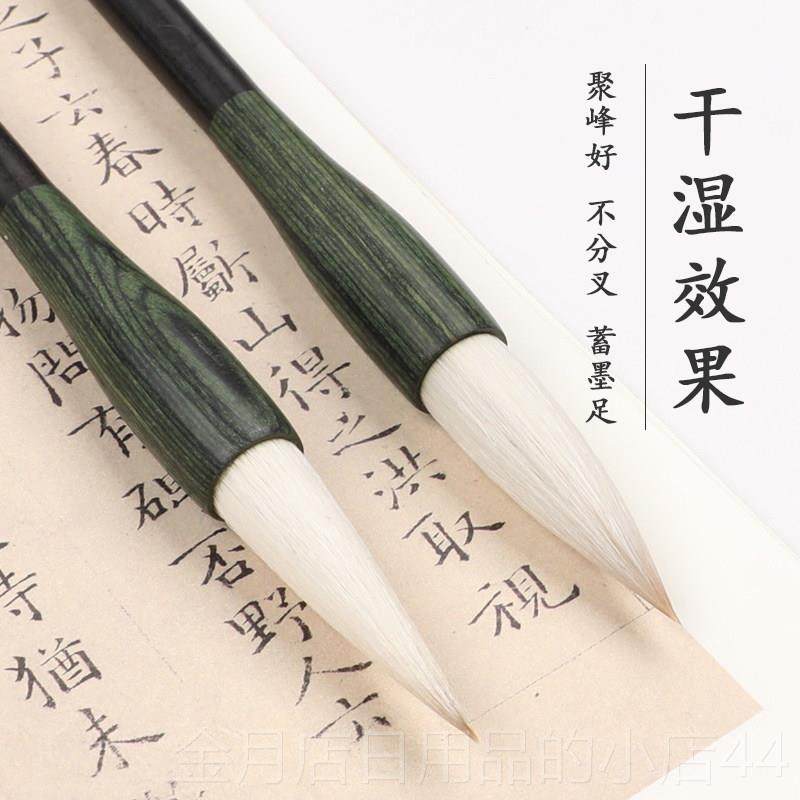 干湿效果
聚峰好 不分叉 蓄墨足
子云春時斸山得之洪取視
物問有否野人六
猶未
金月店日用品的小店44